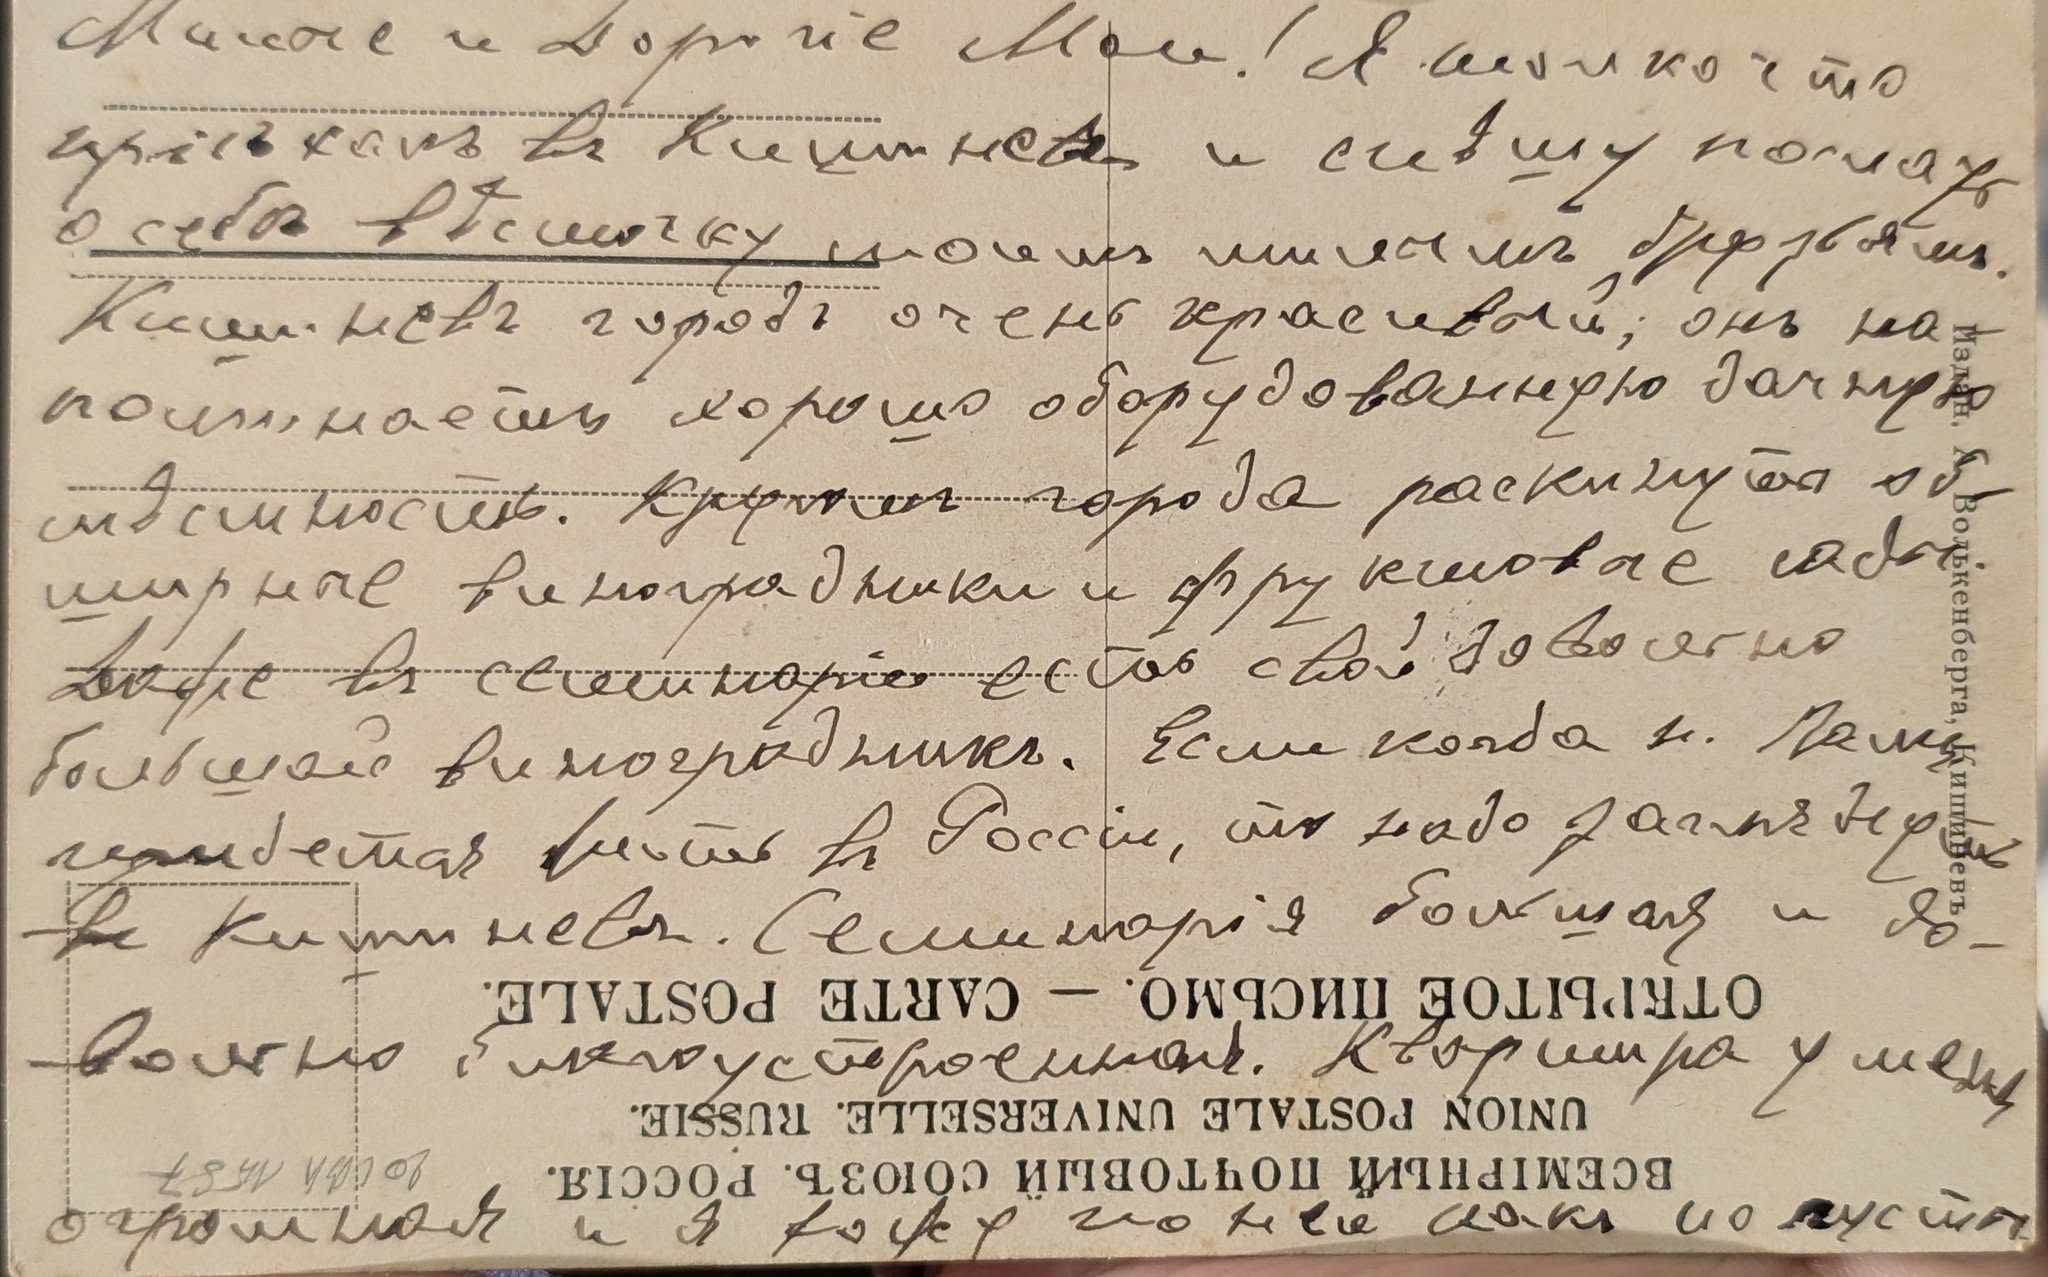 Милые и Дорогіе Мои! Я только что
пріѣхалъ въ Кишиневъ и спѣшу подать
о себѣ вѣсточку моимъ милымъ друзьямъ.
Кишиневъ городъ очень красивый; онъ на
поминаетъ хорошо оборудованную дачную
мѣстность. Кругомъ города раскинуты об
ширные виноградники и фруктовые сады
Даже въ семинаріи есть свой довольно
большой виноградникъ. Если когда н. Вамъ
придется быть въ Россіи, то надо заглянуть
въ Кишиневъ. Семинарія большая и до-
вольно благоустроенная. Квартира у меня
огромная и я хожу по ней какъ по пусты
ОТКРЫТОЕ ПИСЬМО. — CARTE POSTALE.
UNION POSTALE UNIVERSELLE. RUSSIE.
ВСЕМІРНЫЙ ПОЧТОВЫЙ СОЮЗЪ. РОССІЯ.
Издан. А. Волькенберга, Кишиневъ